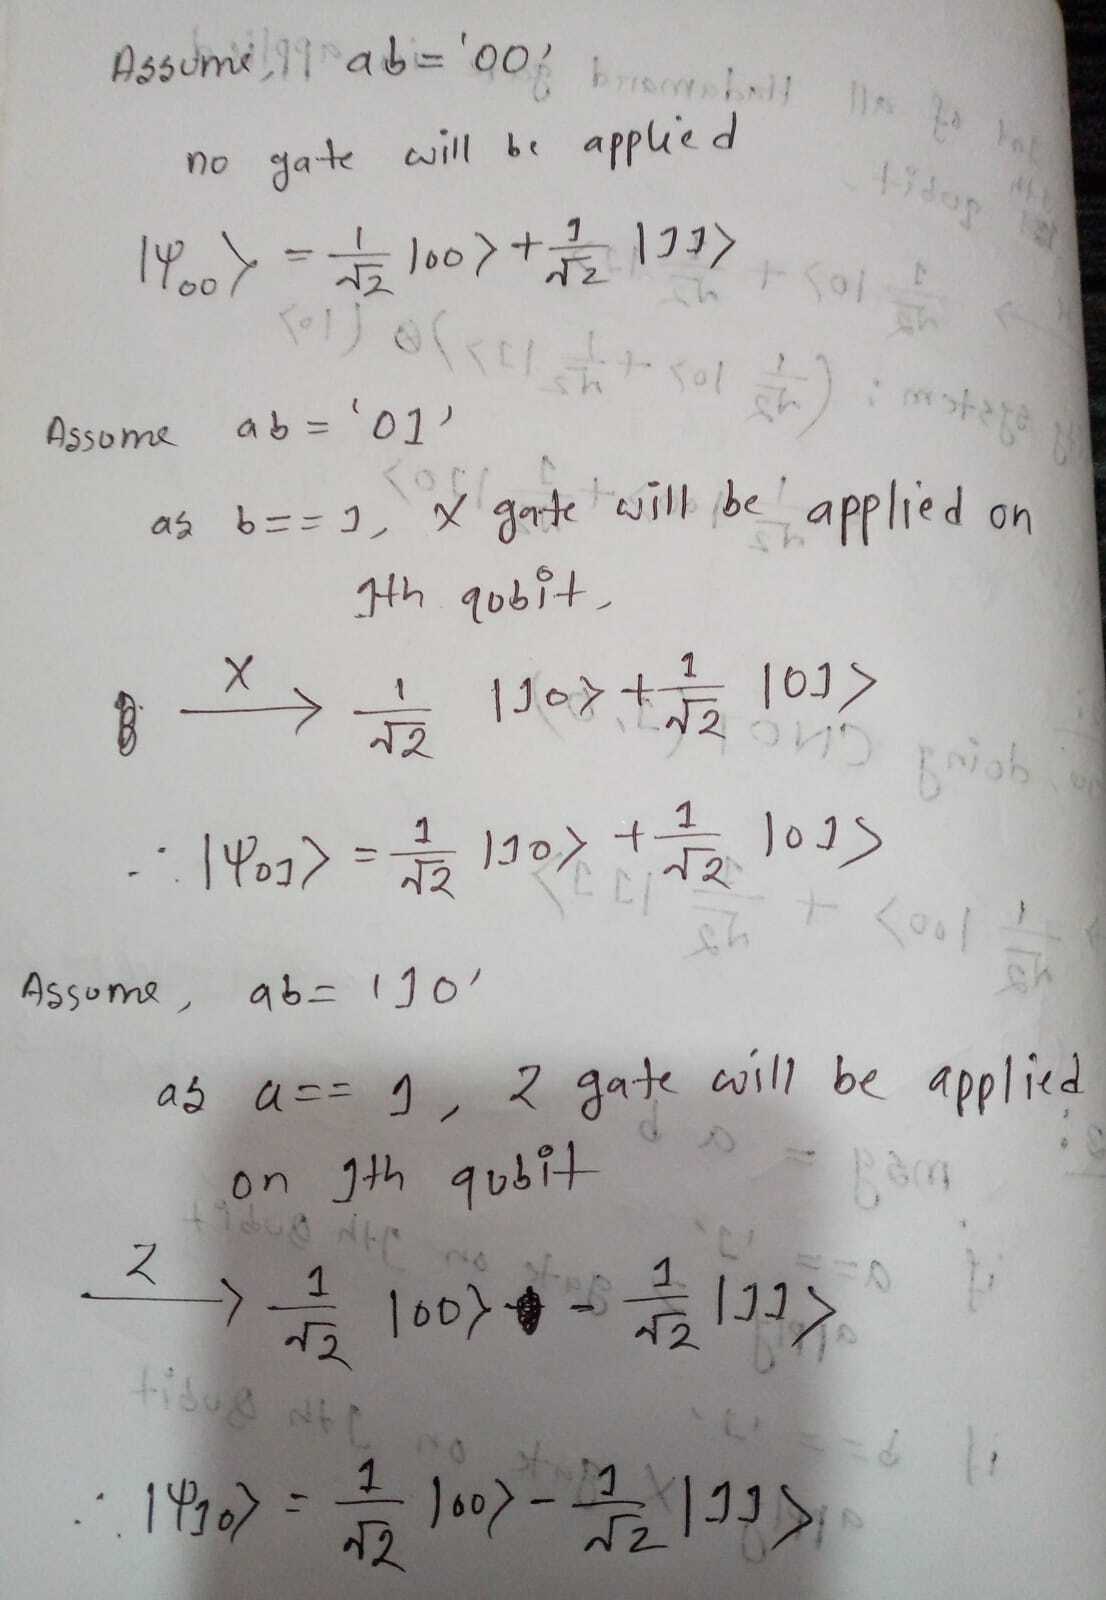 Assume, ab = '00'
no gate will be applied
|ψ₀₀⟩ = 1/√2 |00⟩ + 1/√2 |11⟩
Assume ab = '01'
as b==1, X gate will be applied on
1th qubit,
X→ 1/√2 |10⟩ + 1/√2 |01⟩
∴ |ψ₀₁⟩ = 1/√2 |10⟩ + 1/√2 |01⟩
Assume, ab = '10'
as a==1, Z gate will be applied
on 1th qubit
Z→ 1/√2 |00⟩ - 1/√2 |11⟩
∴ |ψ₁₀⟩ = 1/√2 |00⟩ - 1/√2 |11⟩